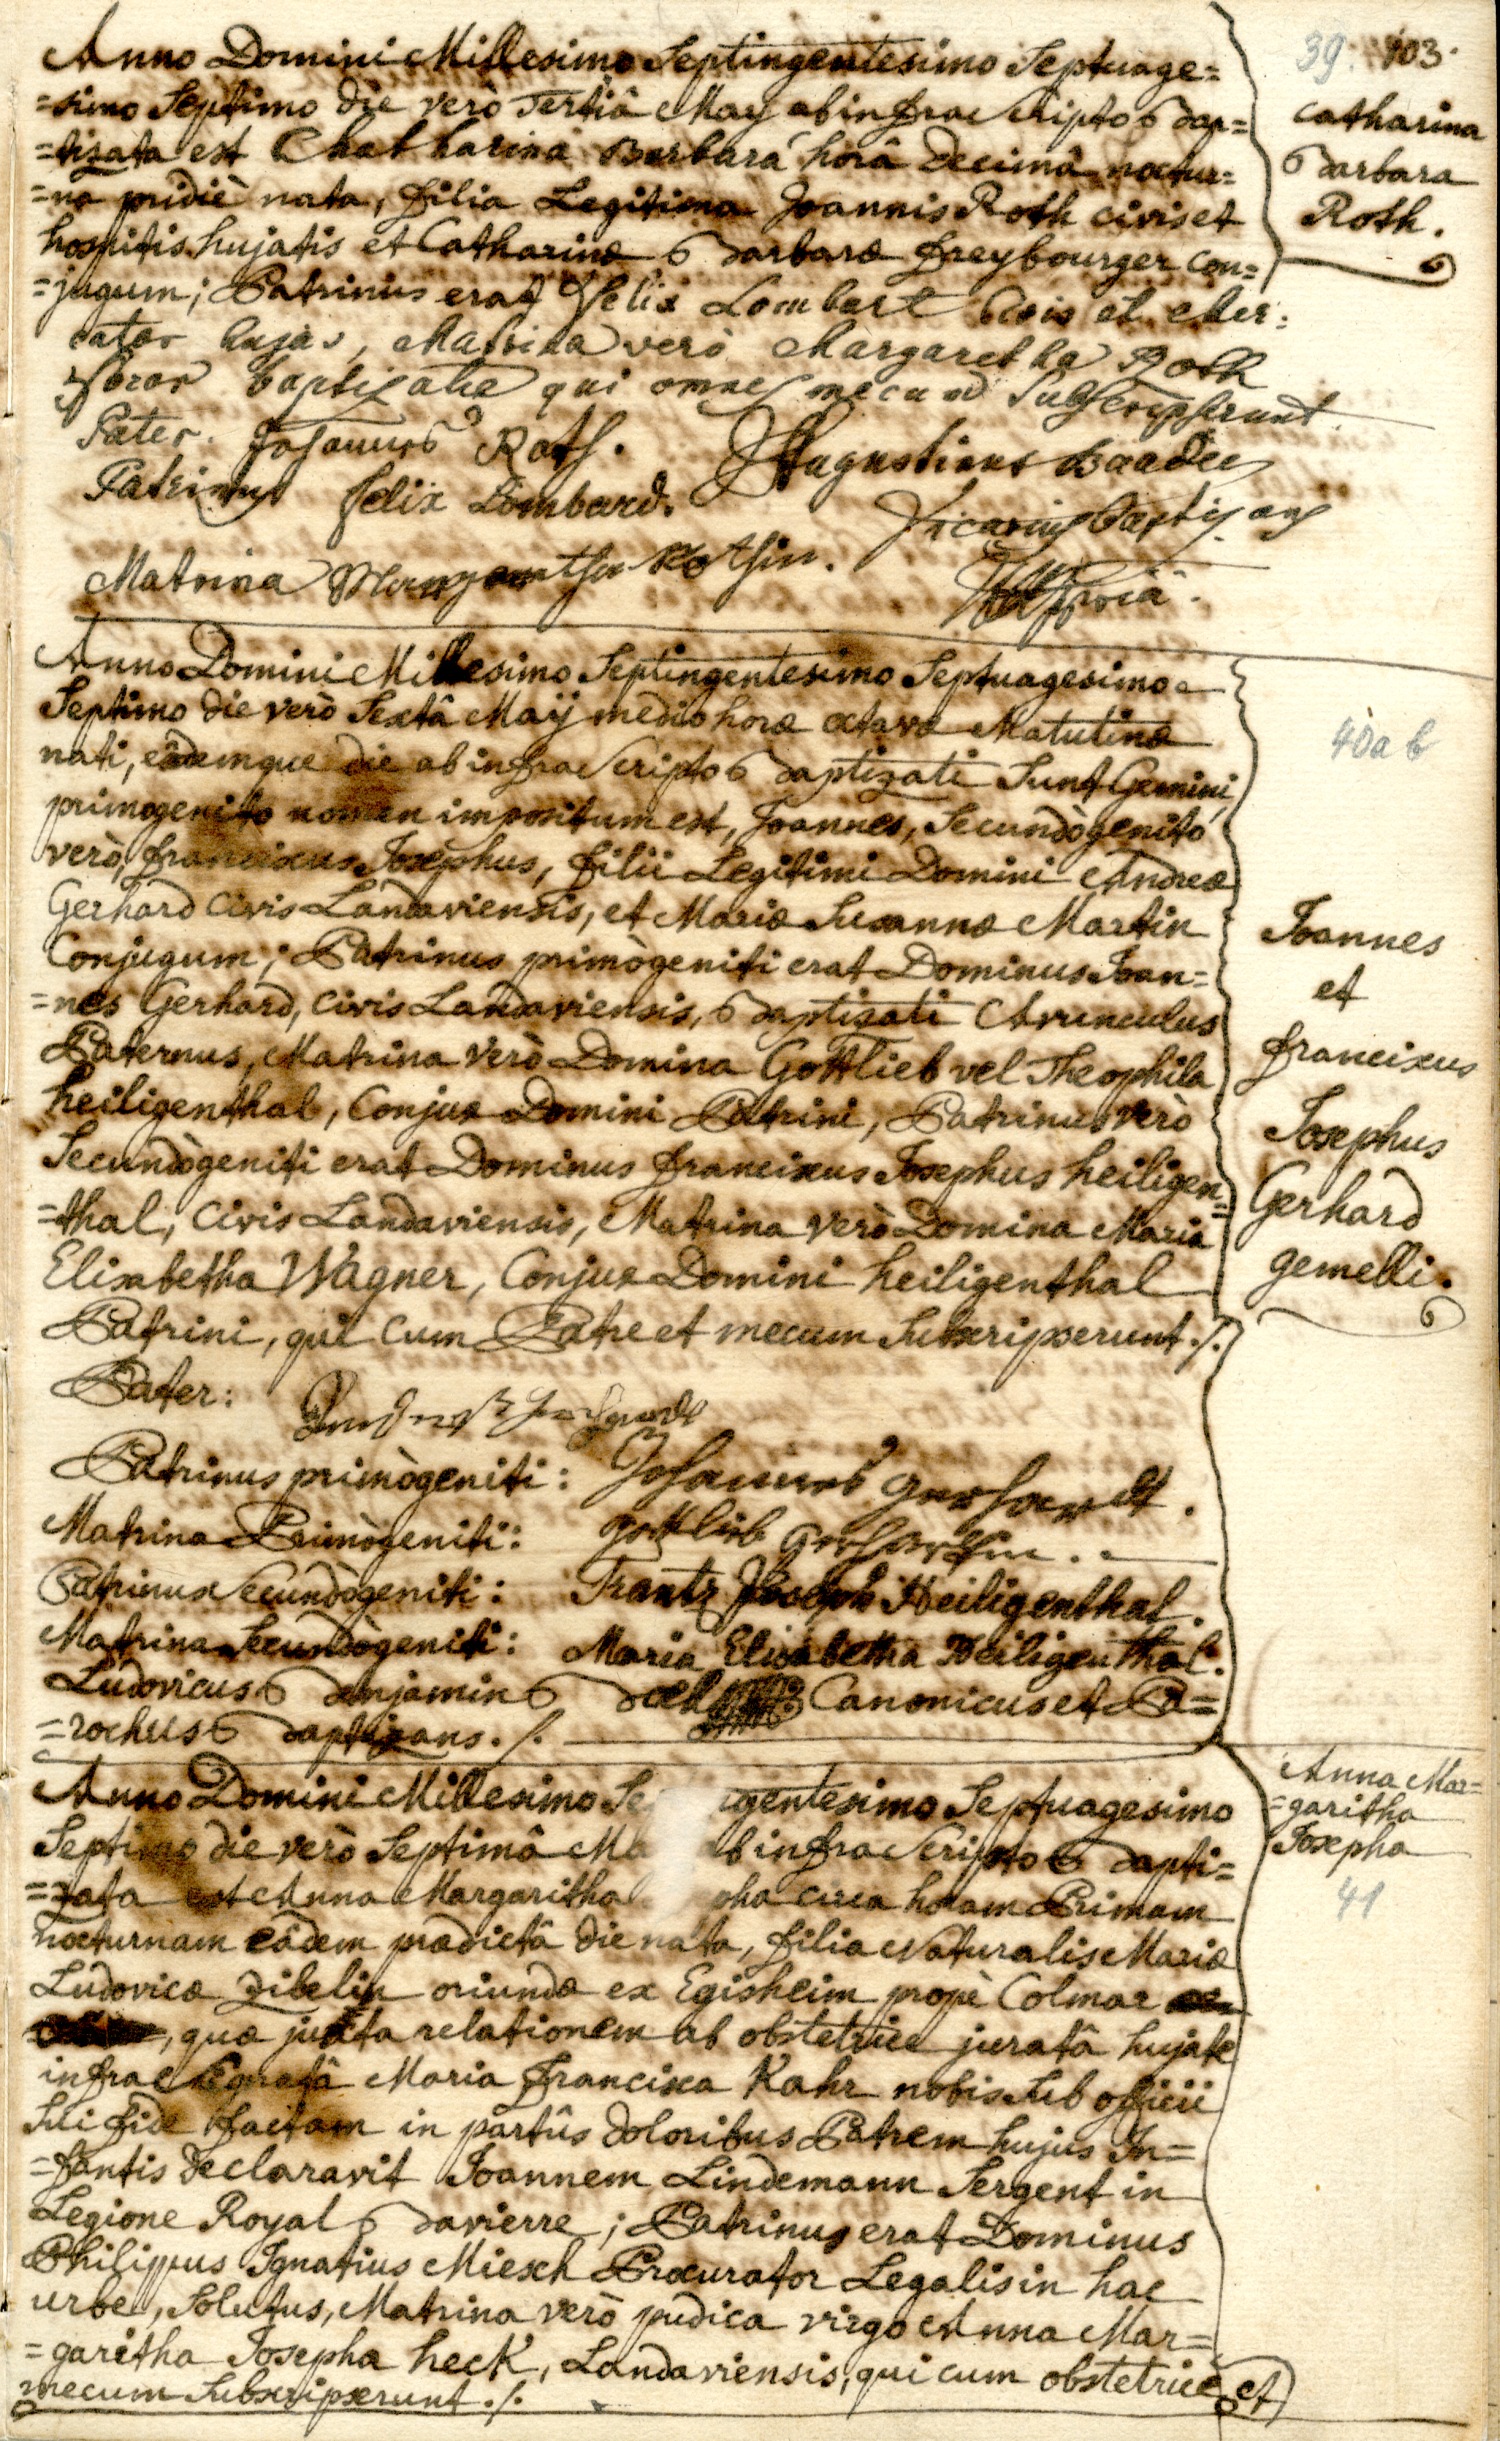 39. 103.
Anno Domini Millesimo Septingentesimo Septuage=
=simo Septimo die verò Tertiâ May ab infra scripto Bap=
=tizata est Chatharina Barbara horâ Decimâ noctur=
=nâ pridiè nata, filia Legitima Joannis Roth civis et
hospitis hujatis et Catharinæ Barbaræ freybourger con=
=jugum; Patrinus erat Felix Lombart civis et Mer=
cator hujas, Matrina verò Margaretha Roth
Soror baptizatæ qui omnes mecum Subscripserunt.
Catharina
Barbara
Roth.
Pater. Johannes Roth. Augustinus Baader
Patrinus Felix Lombard. Vicarius baptizans
Matrina Margaretha Rothin.
Anno Domini Millesimo Septingentesimo Septuagesimo
Septimo die verò Sextâ Maÿ medio horæ octavæ Matutinæ
nati, eâdemque die ab infra scripto Baptizati Sunt Gemini,
primogenito nomen impositum est, Joannes, Secundògenito
verò, franciscus Josephus, filii Legitimi Domini Andreæ
Gerhard civis Landaviensis, et Mariæ Susannæ Martin
Conjugum; Patrinus primògeniti erat Dominus Joan=
=nes Gerhard, civis Landaviensis, Baptizati Avunculus
Paternus, Matrina verò Domina Gottlieb vel Theophila
heiligenthal, Conjux Domini Patrini, Patrinus verò
Secundògeniti erat Dominus franciscus Josephus heiligen=
=thal, civis Landaviensis, Matrina verò Domina Maria
Elisabetha Wagner, Conjux Domini heiligenthal
Patrini, qui cum Patre et mecum Subscripserunt ./.
40 a b
Joannes
et
franciscus
Josephus
Gerhard
gemelli.
Pater: Andreas Gerhardt
Patrinus primògeniti: Johannes Gerhardt.
Matrina Primògeniti: Gottlieb Gerhardtin.
Patrinus Secundògeniti: Frantz Joseph Heiligenthal.
Matrina Secundògeniti: Maria Elisabetha Heiligenthal.
Ludovicus Benjamin Canonicus et Pa=
=rochus Baptizans ./.
Anno Domini Millesimo Se igentesimo Septuagesimo
Septimo die verò Septimâ Ma ab infra scripto Bapti=
=zata est Anna Margaritha pha circa horam Primam
nocturnam eâdem prædictâ die nata, filia Naturalis Mariæ
Ludovicæ Zibelin oriundæ ex Egisheim propè Colmar
, quæ juxta relationem ab obstetrice juratâ hujate
infra signatâ Maria Francisca Kahr nobis sub officii
sui fide factam in partûs doloribus Patrem hujus In=
=fantis declaravit Joannem Lindemann Sergent in
Legione Royal Bavierre; Patrinus erat Dominus
Philippus Ignatius Miesch Procurator Legalis in hac
urbe, Solutus, Matrina verò pudica virgo Anna Mar=
=garitha Josepha heck, Landaviensis, qui cum obstetrice et
mecum Subscripserunt ./.
Anna Mar=
=garitha
Josepha
41